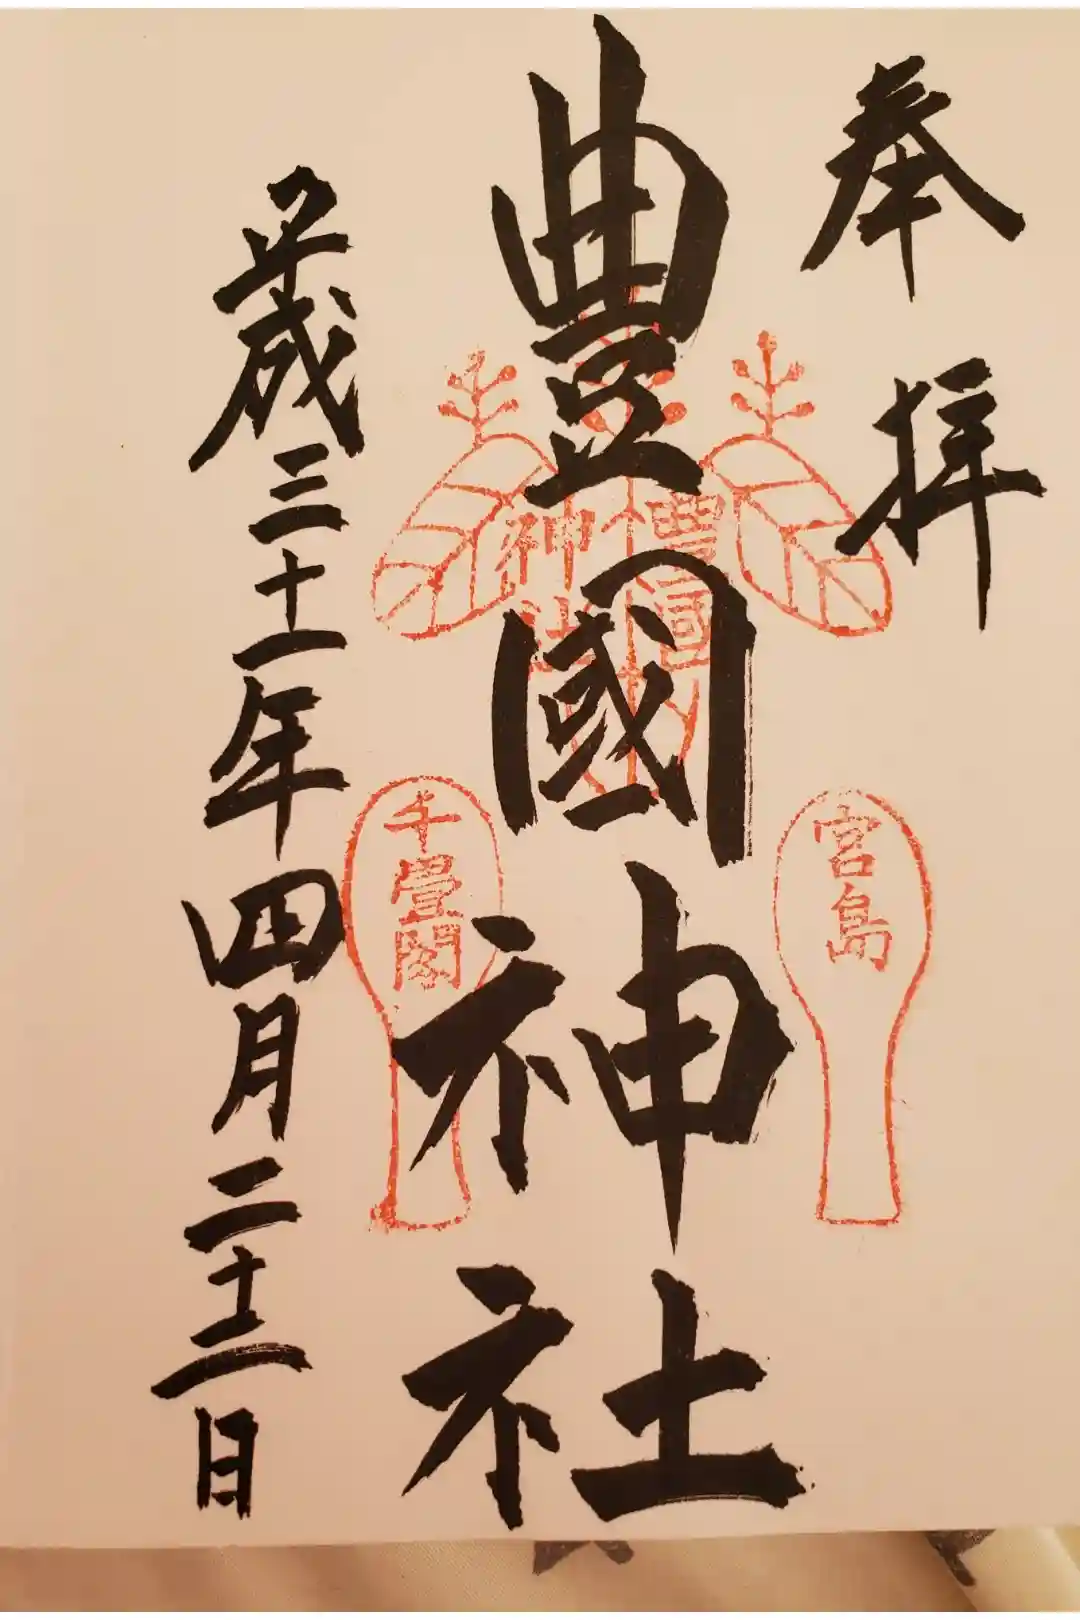 奉拝
豊國神社
平成三十一年四月二十二日
宮島
豊国
神社
千畳閣